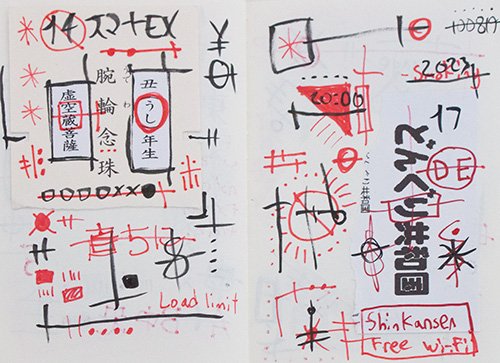 14 スマートEX
虚空蔵菩薩
腕輪念珠
うでわ
丑うし年生
Load limit
+00819
2023
20:00
17
どんぐり共和国
DE
Shinkansen
Free Wi-Fi